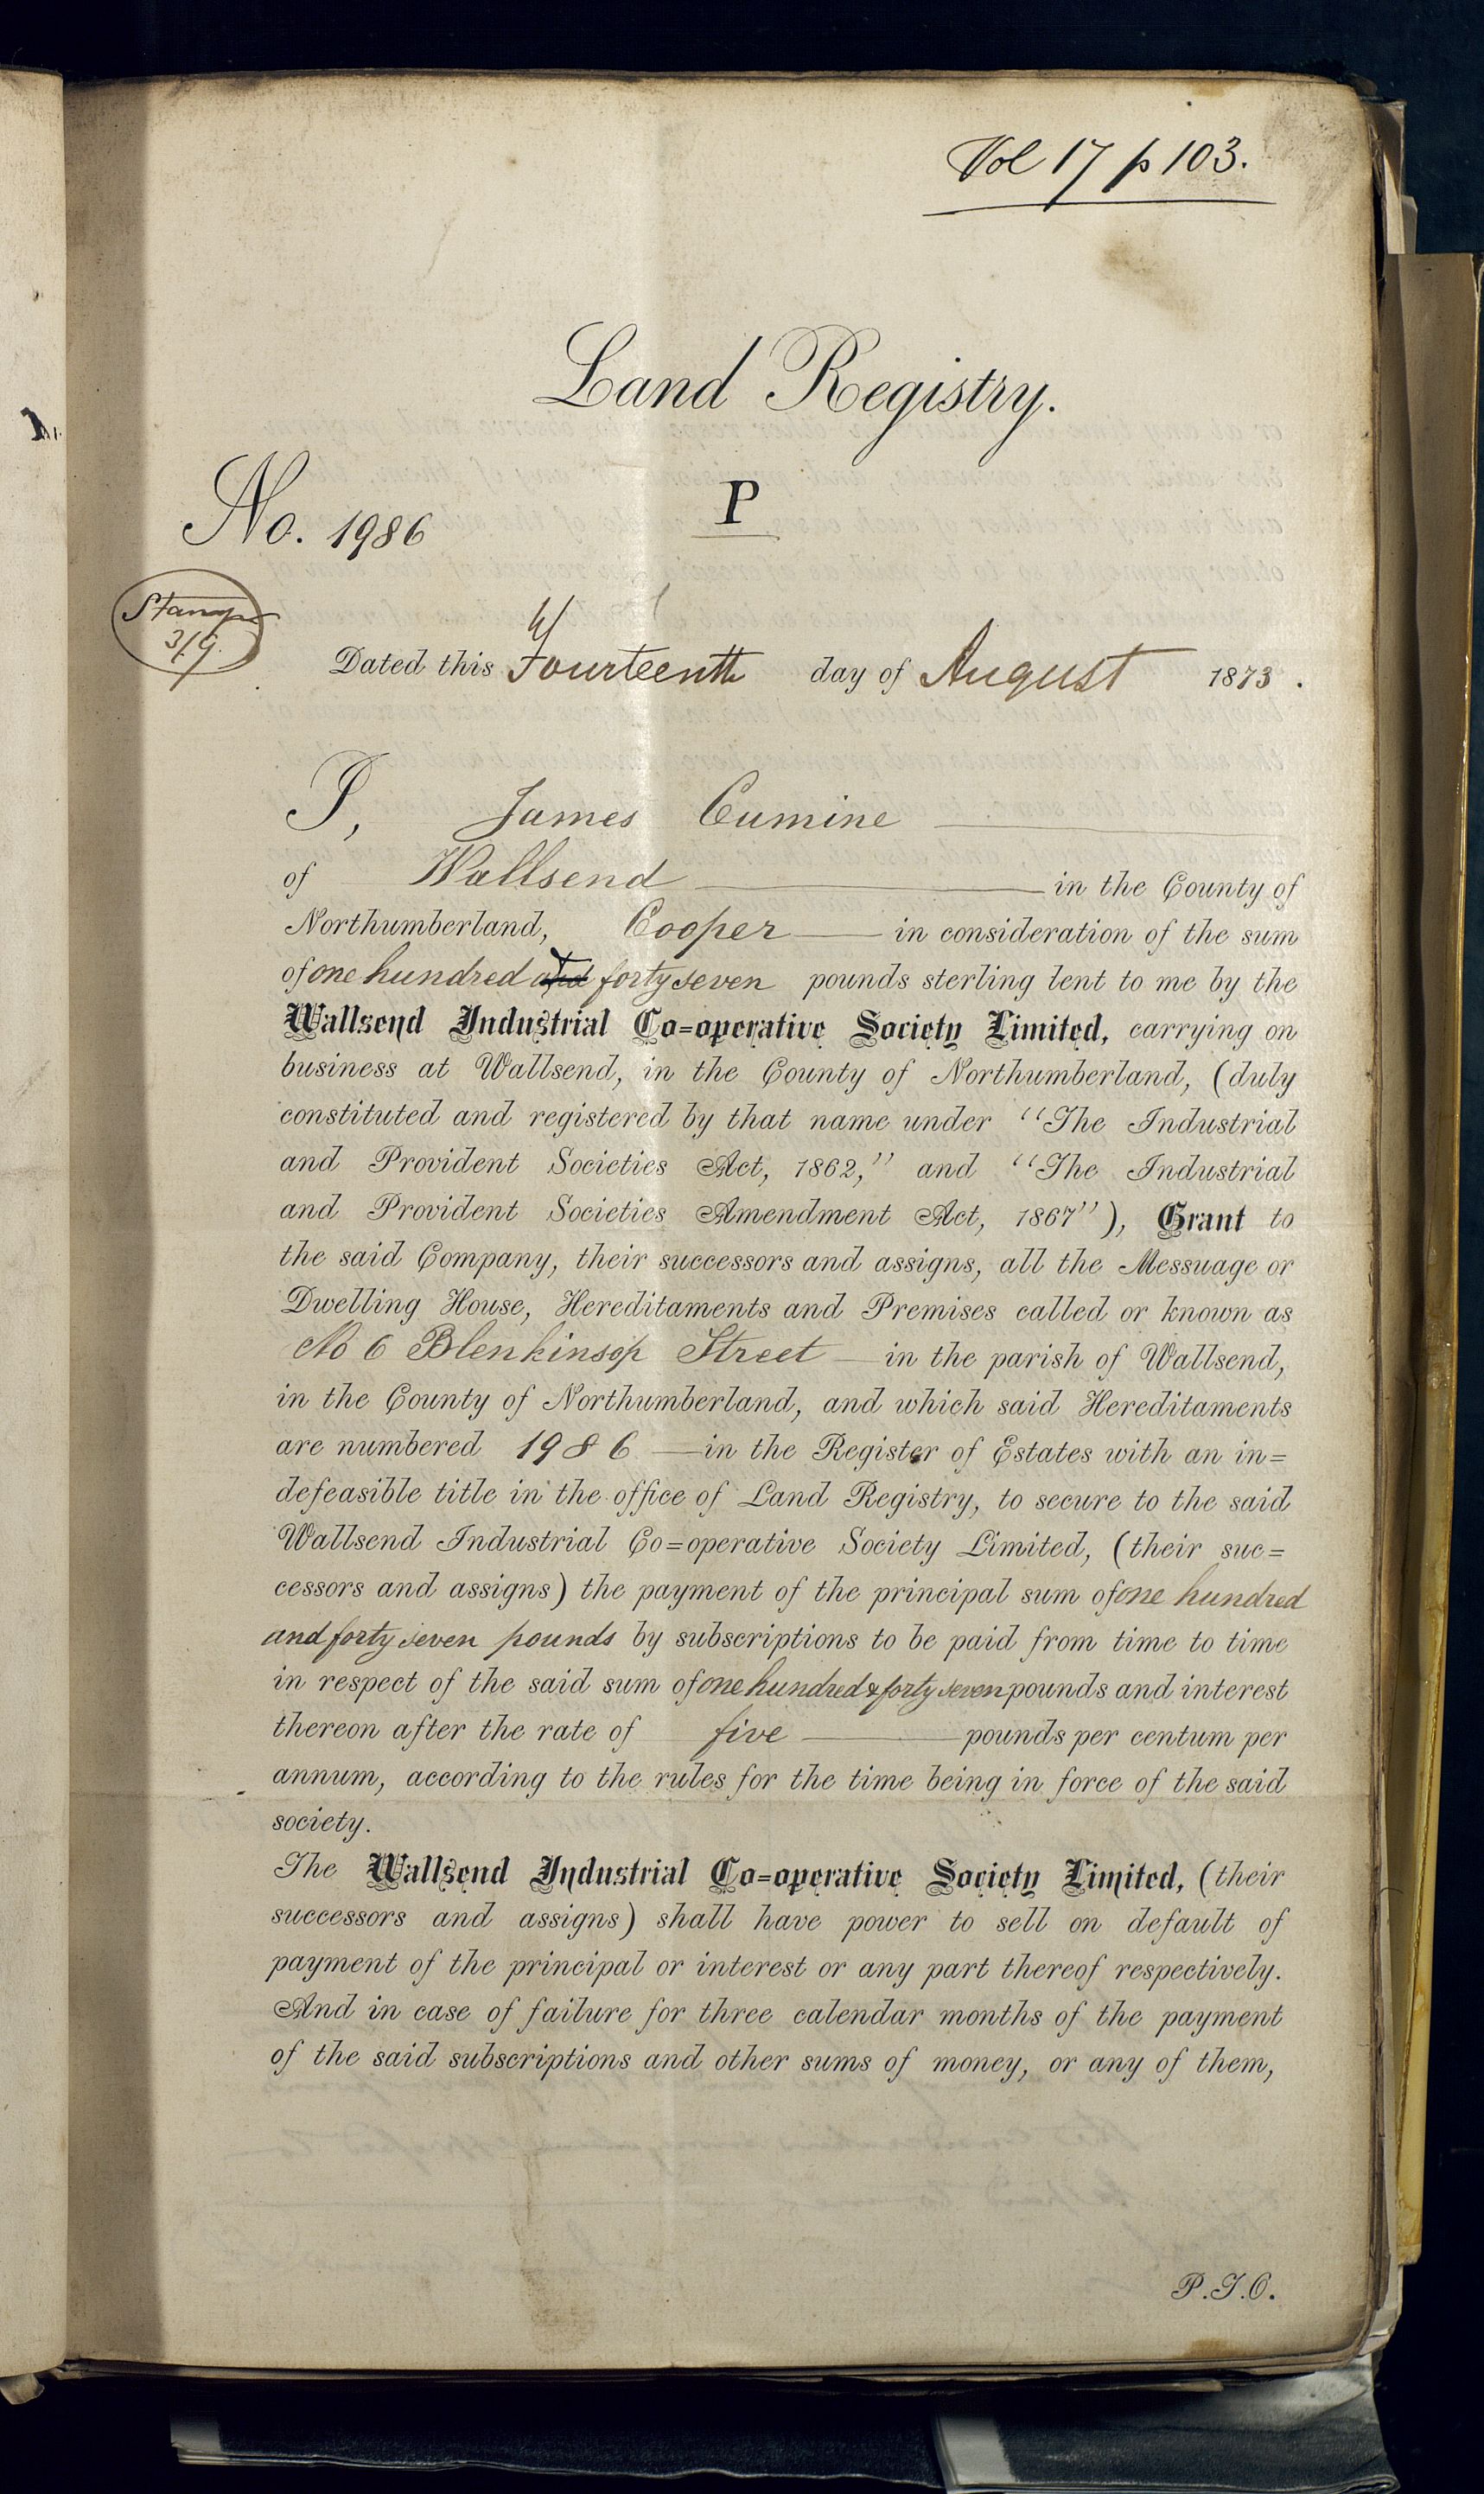 Vol 17 p 103.
Land Registry.
No. 1986
P
Stamp
3/9.
Dated this Fourteenth day of August 1873.
I, James Cumine
of Wallsend in the County of
Northumberland, Cooper in consideration of the sum
of one hundred and forty seven pounds sterling lent to me by the
Wallsend Industrial Co=operative Society Limited, carrying on
business at Wallsend, in the County of Northumberland, (duly
constituted and registered by that name under "The Industrial
and Provident Societies Act, 1862," and "The Industrial
and Provident Societies Amendment Act, 1867"), Grant to
the said Company, their successors and assigns, all the Messuage or
Dwelling House, Hereditaments and Premises called or known as
No 6 Blenkinsop Street in the parish of Wallsend,
in the County of Northumberland, and which said Hereditaments
are numbered 1986 in the Register of Estates with an in=
defeasible title in the office of Land Registry, to secure to the said
Wallsend Industrial Co=operative Society Limited, (their suc=
cessors and assigns) the payment of the principal sum of one hundred
and forty seven pounds by subscriptions to be paid from time to time
in respect of the said sum of one hundred & forty seven pounds and interest
thereon after the rate of five pounds per centum per
annum, according to the rules for the time being in force of the said
society.
The Wallsend Industrial Co=operative Society Limited, (their
successors and assigns) shall have power to sell on default of
payment of the principal or interest or any part thereof respectively.
And in case of failure for three calendar months of the payment
of the said subscriptions and other sums of money, or any of them,
P.T.O.